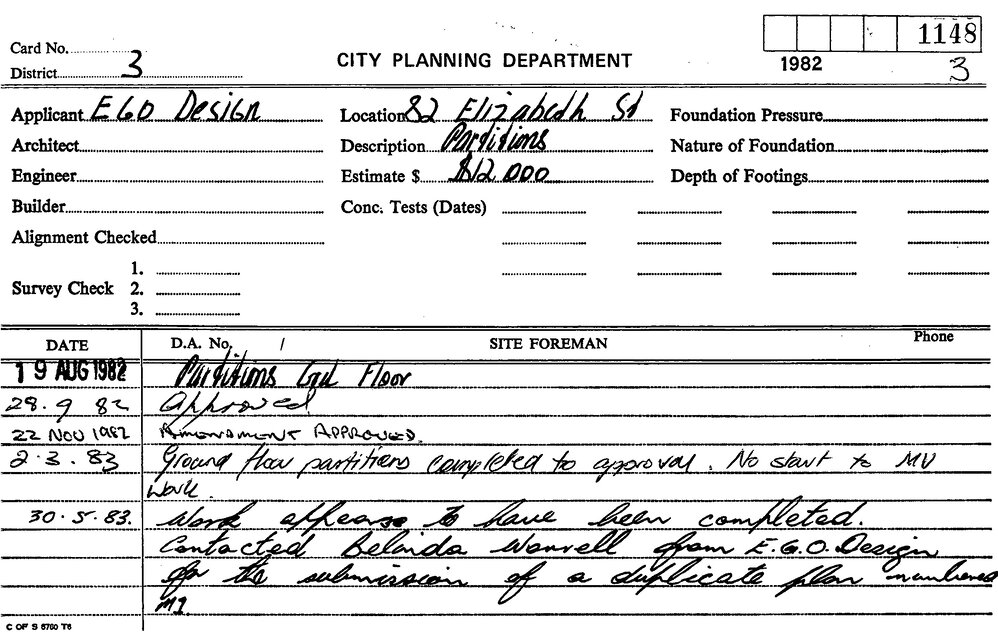 1148
Card No.
District 3
CITY PLANNING DEPARTMENT
1982
3
Applicant EGO Design
Location 82 Elizabeth St
Foundation Pressure
Architect
Description Partitions
Nature of Foundation
Engineer
Estimate $ $12,000
Depth of Footings
Builder
Conc. Tests (Dates)
Alignment Checked
1.
Survey Check 2.
3.
DATE D.A. No. / SITE FOREMAN Phone
19 AUG 1982 Partitions Gnd Floor
28.9 82 Approved
22 NOV 1982 AMENDMENT APPROVED.
2.3.83 Ground floor partitions completed to approval. No start to MV
Work.
30.5.83. Work appears to have been completed.
Contacted Belinda Worrell from E.G.O. Design
for the submission of a duplicate plan numbered
C OF S 5760 T6